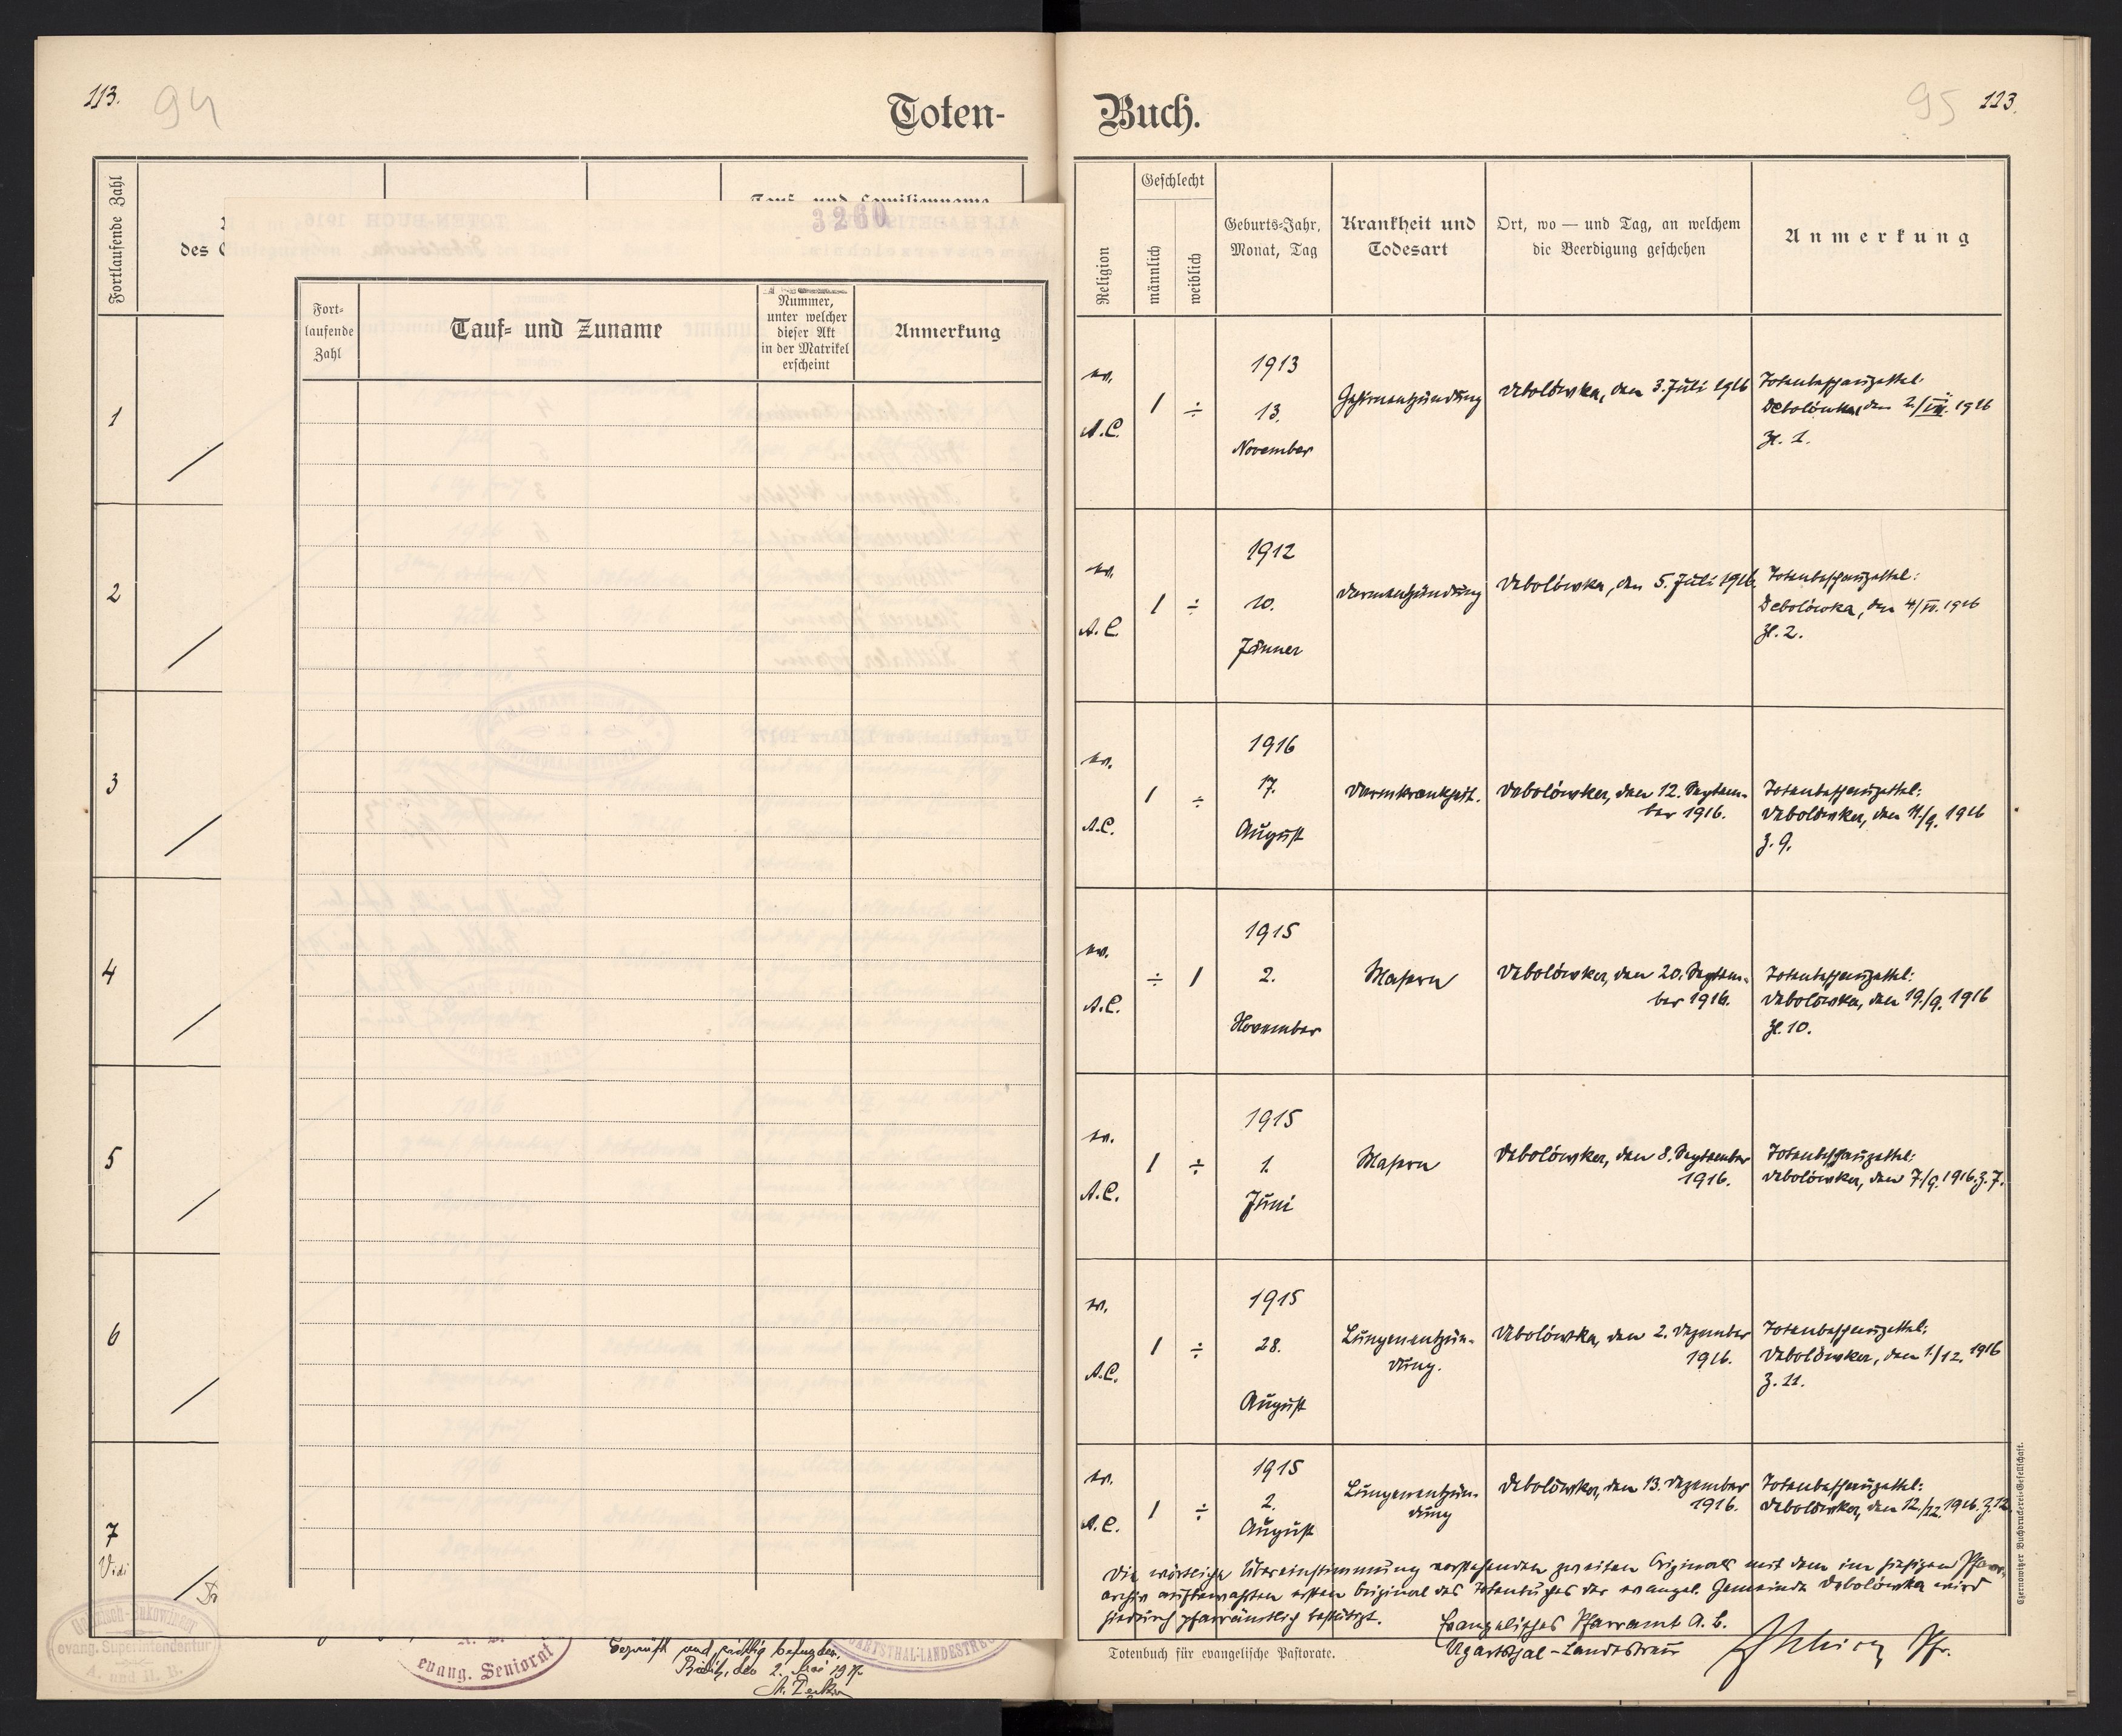 113.
94
Toten-
Fortlaufende Zahl
des
Tauf- und Familienname
3260
Fort-
laufende
Zahl
Tauf- und Zuname
Nummer,
unter welcher
dieser Akt
in der Matrikel
erscheint
Anmerkung
1
2
3
4
5
6
7
Vidi
evang. Superintendentur
A. und H. B.
evang. Seniorat
Geprüft und richtig befunden.
den 2. Mai 1917.
UGARTSTHAL-LANDESTREU
Buch.
95
113.
Religion
Geschlecht
männlich
weiblich
Geburts-Jahr,
Monat, Tag
Krankheit und
Todesart
Ort, wo — und Tag, an welchem
die Beerdigung geschehen
Anmerkung
ev.
A.C.
1
÷
1913
13.
November
Gehirnentzündung
Debolówka, den 3. Juli 1916
Totenbeschauzettel:
Debolówka, den 2./VII. 1916
Zl. 1.
ev.
A.C.
1
÷
1912
10.
Jänner
Darmentzündung
Debolówka, den 5. Juli 1916.
Totenbeschauzettel:
Debolówka, den 4/VII. 1916
Zl. 2.
ev.
A.C.
1
÷
1916
17.
August
Darmkrankheit.
Debolówka, den 12. Septem-
ber 1916.
Totenbeschauzettel:
Debolówka, den 11./9. 1916
Z. 9.
ev.
A.C.
÷
1
1915
2.
November
Masern
Debolówka, den 20. Septem-
ber 1916.
Totenbeschauzettel:
Debolówka, den 19./9. 1916
Zl. 10.
ev.
A.C.
1
÷
1915
1.
Juni
Masern
Debolówka, den 8. September
1916.
Totenbeschauzettel:
Debolówka, den 7/9. 1916. Z. 7.
ev.
A.C.
1
÷
1915
28.
August
Lungenentzün-
dung.
Debolówka, den 2. Dezember
1916.
Totenbeschauzettel:
Debolówka, den 1./12. 1916
Z. 11.
ev.
A.C.
1
÷
1915
2.
August
Lungenentzün-
dung
Debolówka, den 13. Dezember
1916.
Totenbeschauzettel:
Debolówka, den 12./12. 1916. Z. 12.
Die wörtliche Übereinstimmung vorstehenden zweiten Originals mit dem im hiesigen Pfarr-
archiv aufbewahrten ersten Original des Totenbuches der evangel. Gemeinde Debolówka wird
hiedurch pfarrämtlich bestätigt.
Evangelisches Pfarramt A. B.
Ugartsthal-Landestreu
Pfr.
Totenbuch für evangelische Pastorate.
Czernowitzer Buchdruckerei-Gesellschaft.